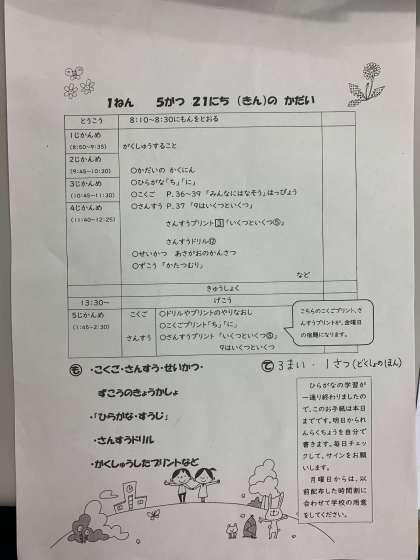 1ねん 5がつ 21にち (きん)の かだい
とうこう 8:10~8:30にもんをとおる
1じかんめ
(8:50~9:35) がくしゅうすること
2じかんめ
(9:45~10:30) ○かだいの かくにん
3じかんめ ○ひらがな「ち」「に」
(10:45~11:30) ○こくご P.36~39「みんなにはなそう」はっぴょう
4じかんめ ○さんすう P.37「9はいくつといくつ」
(11:40~12:25)
さんすうプリント 3 「いくつといくつ⑤」
さんすうドリル⑫
○せいかつ あさがおのかんさつ
○ずこう「かたつむり」
など
きゅうしょく
13:30~ げこう
5じかんめ こくご ○ドリルやプリントのやりなおし
(1:45~2:30) ○こくごプリント「ち」「に」
さんすう ○さんすうプリント「いくつといくつ⑤」
9はいくつといくつ
こちらのこくごプリント、さ
んすうプリントが、金曜日
の宿題になります。
も ・こくご・さんすう・せいかつ・
ずこうのきょうかしょ
・「ひらがな・すうじ」
・さんすうドリル
・がくしゅうしたプリントなど
て 3まい・1さつ(どくしょのほん)
ひらがなの学習が
一通り終わりましたの
で、このお手紙は本日
までです。明日かられ
んらくちょうを自分で
書きます。毎日チェッ
クして、サインをお願
いします。
月曜日からは、以
前配布した時間割に
合わせて学校の用意
をしてください。